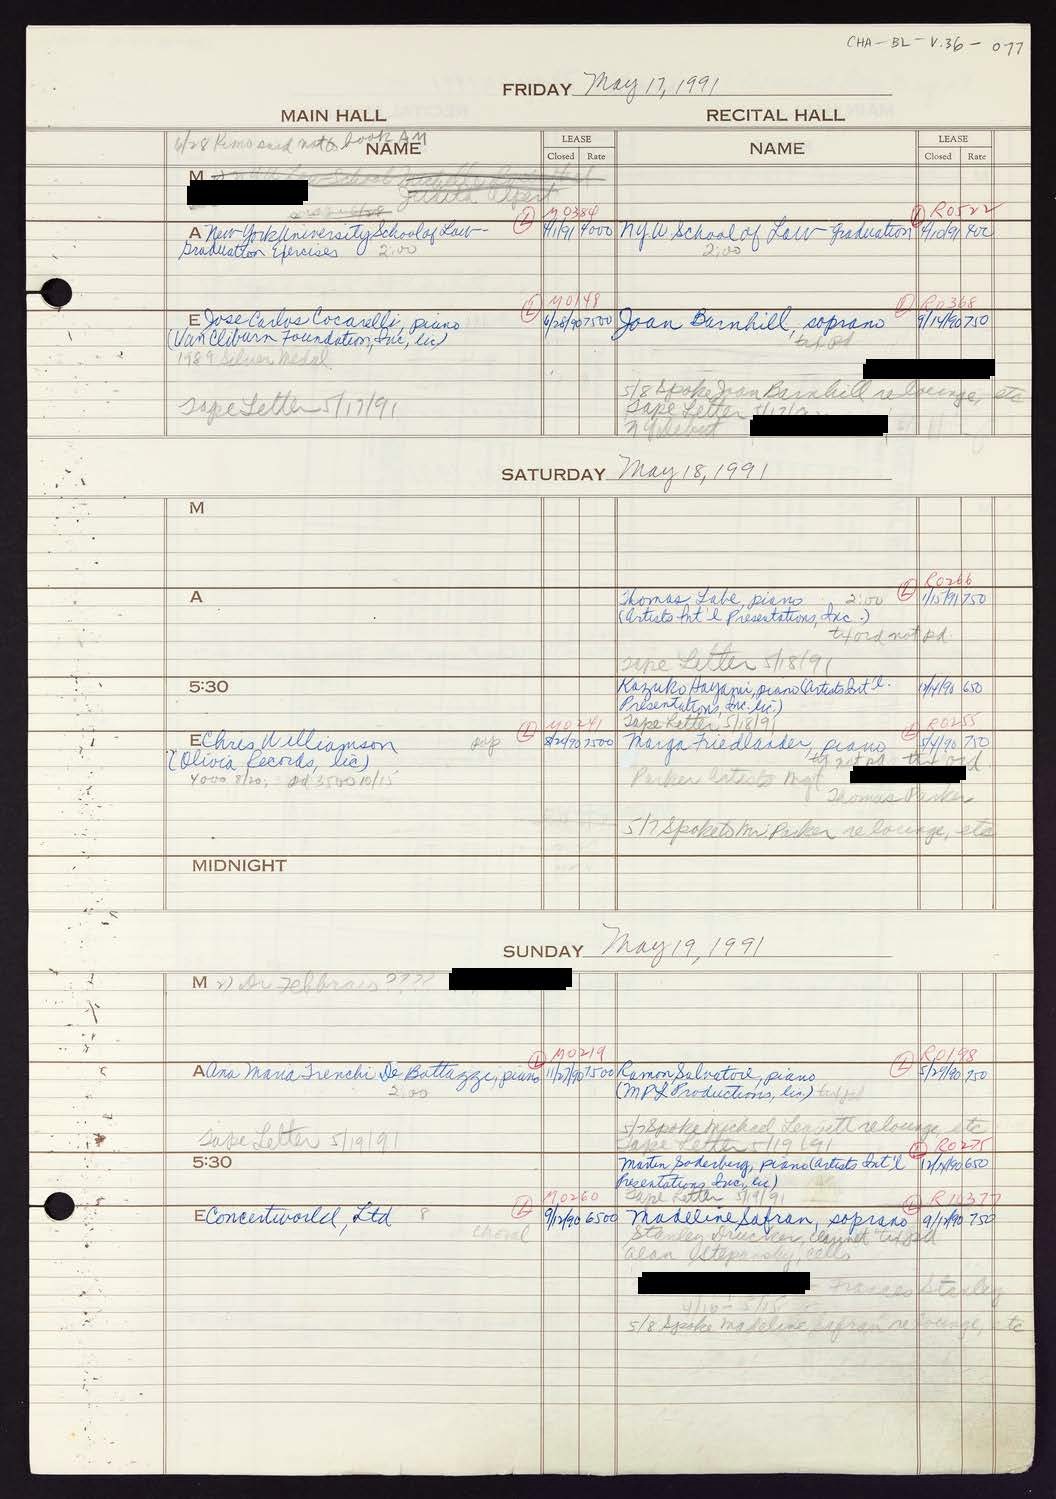 CHA-BL-V.36-077
FRIDAY May 17, 1991
MAIN HALL
RECITAL HALL
6/28 said not to book AM
NAME
LEASE
Closed Rate
NAME
LEASE
Closed Rate
M
M0384
A New York University School of Law-
4/1/91 4000
Graduation Exercises 2:00
R0522
NYU School of Law-Graduation
4/10/91 400
2:00
M0148
E Jose Carlos Cocarelli, piano
6/28/90 7500
(Van Cliburn Foundation, Inc, lic)
1989 Silver Medal
Tape Letter 5/17/91
R0368
Joan Barnhill, soprano
9/14/90 750
5/8 Spoke Joan Barnhill re lounge, etc
Tape Letter 5/17/91
NY debut
SATURDAY May 18, 1991
M
A
R0266
Thomas Labe, piano 2:00
1/15/91 750
(Artists Int'l Presentations, Inc.)
not pd.
Tape Letter 5/18/91
5:30
Kazuko Hayami, piano (Artists Int'l.
650
Presentations, Inc. lic)
Tape Letter 5/18/91
M0241
E Chris Williamson
8/24/90 7500
(Olivia Records, lic)
4000 8/20, pd 3500 10/15
R0255
Marga Friedlander, piano
750
Parker Artists Mgt
Thomas Parker
5/7 Spoke to Mr. Parker re lounge, etc
MIDNIGHT
SUNDAY May 19, 1991
M 2) Dr Febbraio ????
M0219
A Ana Maria Trenchi De Bottazzi, piano
11/27/90 7500
2:00
Tape Letter 5/19/91
R0198
Ramon Salvatore, piano
5/29/90 750
(MPL Productions, lic)
5/7 Spoke Michael Leavitt re lounge, etc
Tape Letter 5/19/91
5:30
R0275
Martin Soderberg, piano (Artists Int'l
650
Presentations Inc, lic)
Tape Letter 5/19/91
M0260
E Concertworld, Ltd. 8
9/12/90 6500
choral
Madeline Safran, soprano
750
Stanley Drucker, clarinet
Alan Stepansky, cello
- Frances Stanley
4/10 - 5/15
5/8 Spoke Madeline Safran re lounge, etc